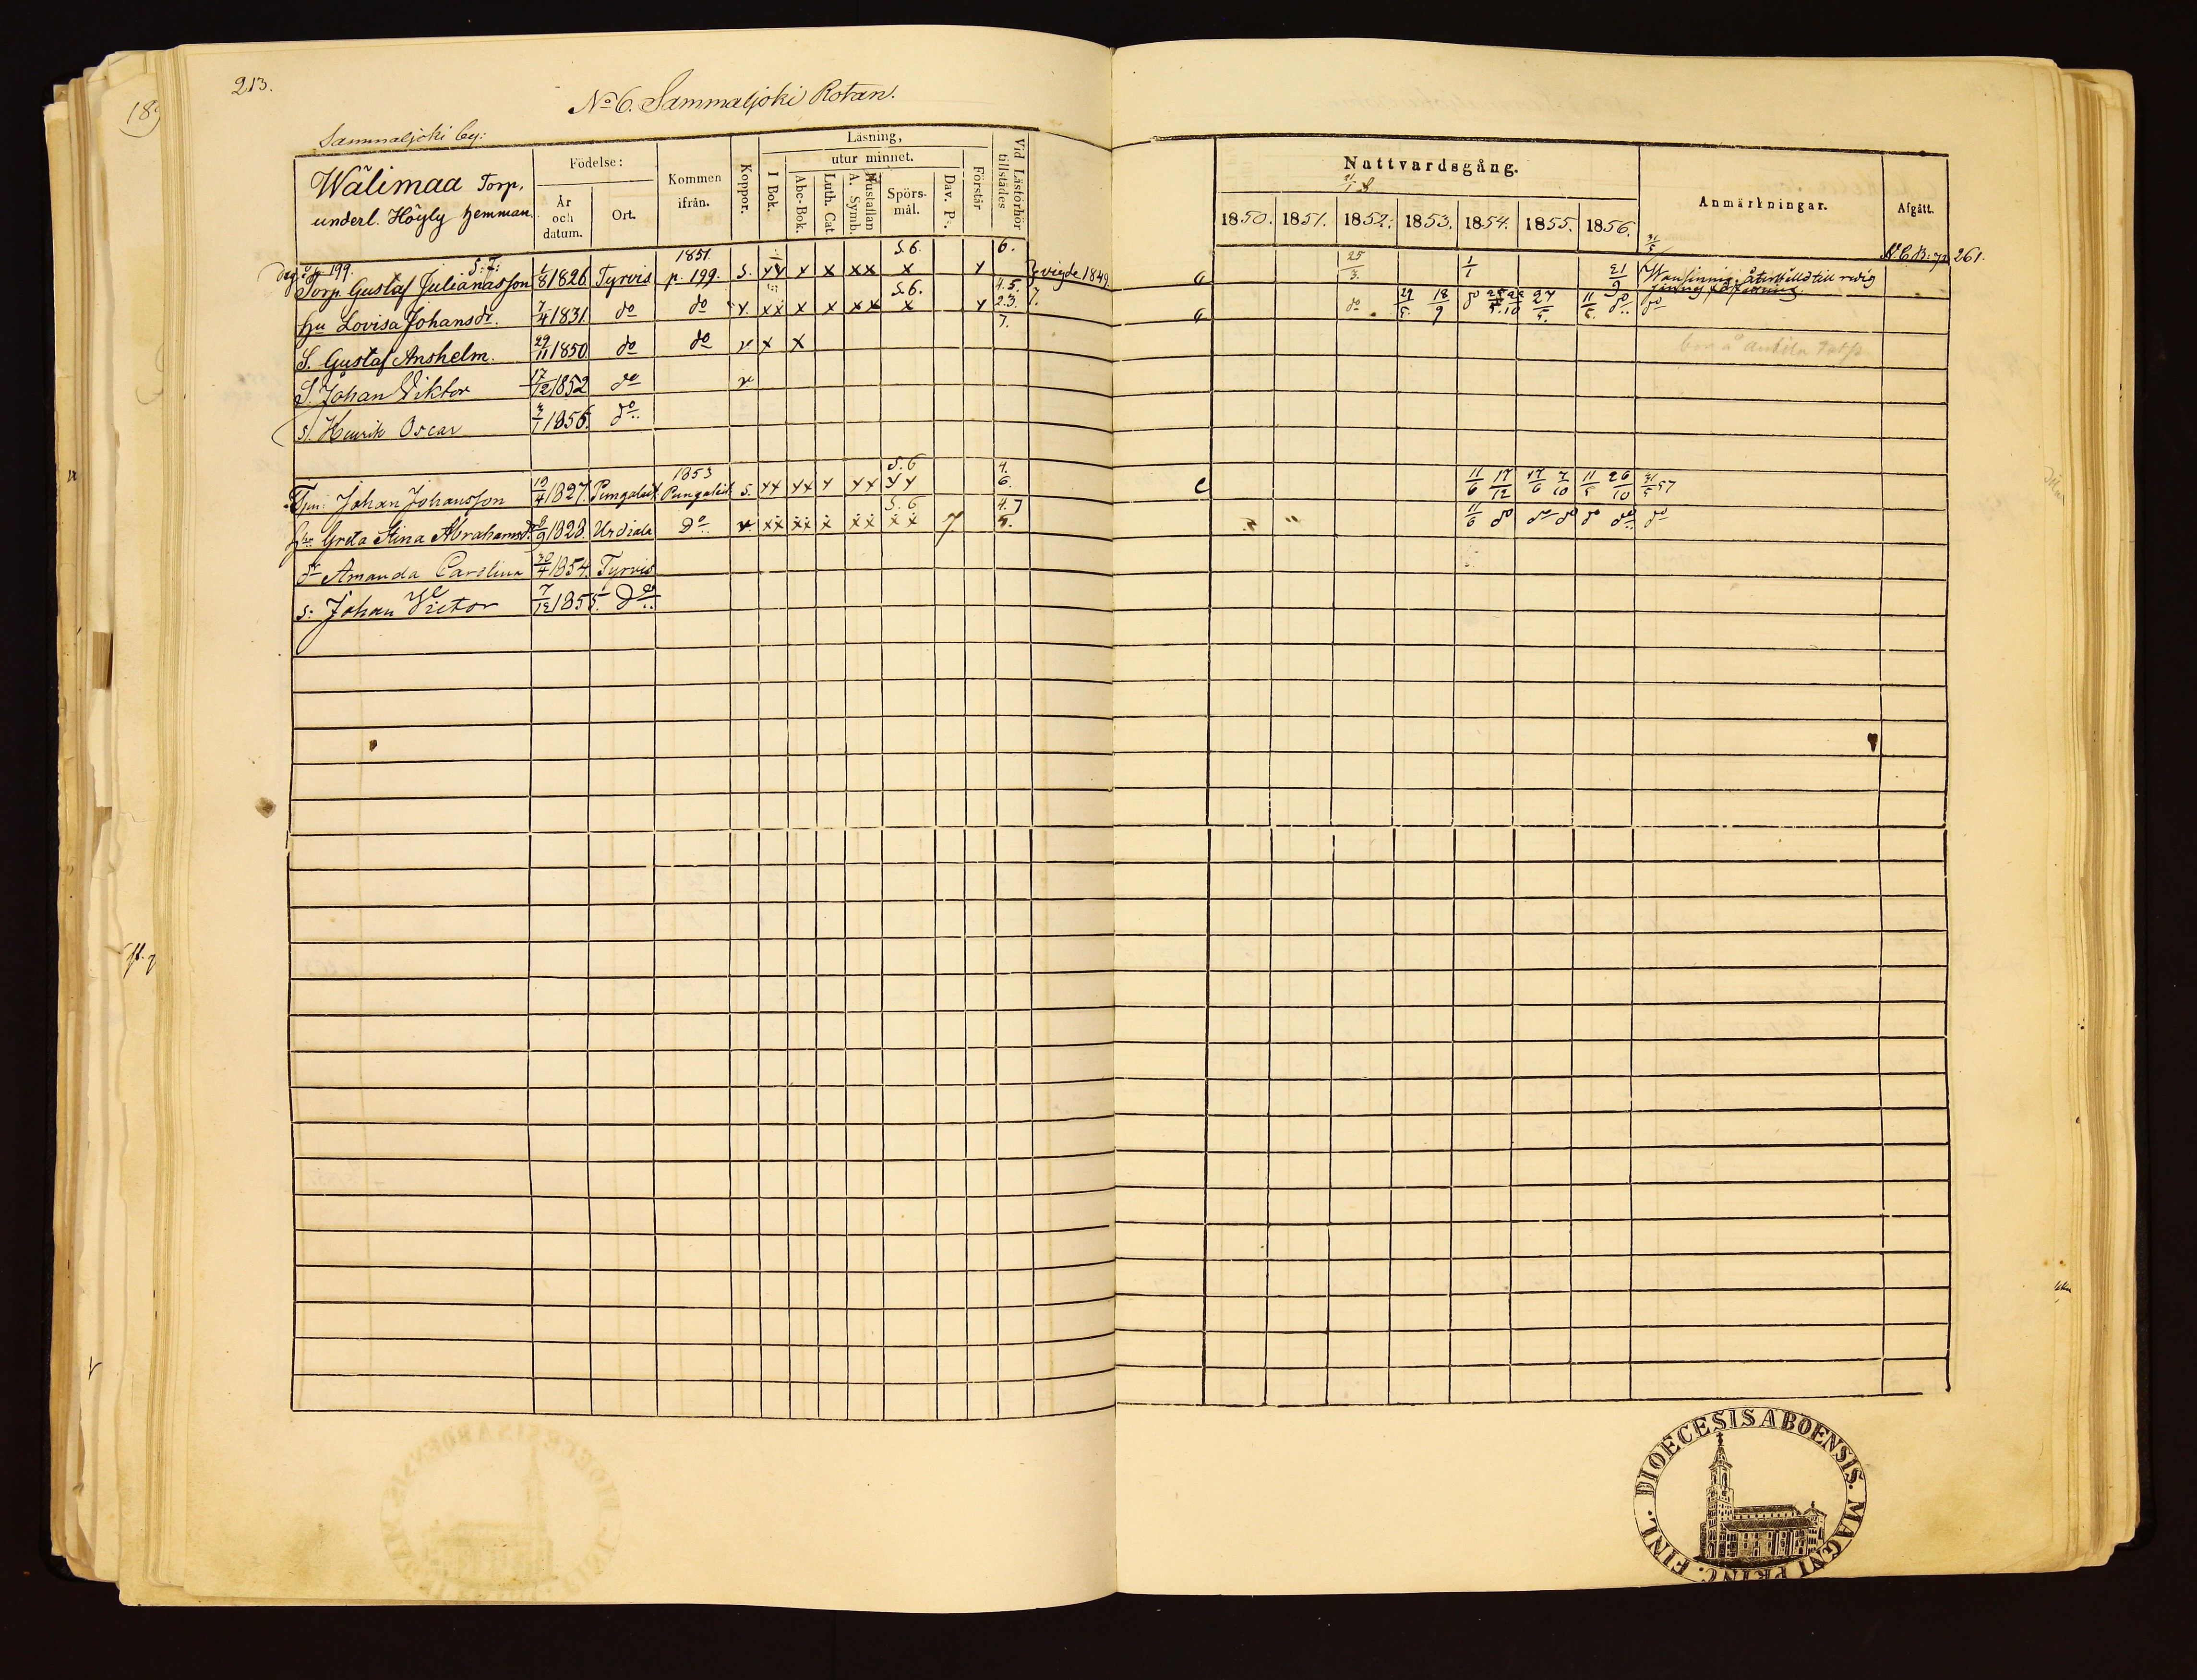 213.
No 6. Sammaljoki Rotan.
Sammaljoki by:
Wälimaa Torp,
underl. Höyly hemman.
Födelse:
År och datum.
Ort.
Kommen ifrån.
Koppor.
Läsning,
I Bok.
utur minnet.
Abc-Bok.
Luth. Cat.
A. Symb.
Hustaflan
Spörs-mål.
Dav. Ps.
Förstår
Vid Läsförhör tillstädes
Nattvardsgång.
1850. 1851. 1852. 1853. 1854. 1855. 1856.
Anmärkningar.
Afgått.
p. 199. 1851 S.6. 6. N.C.B. 261.
Torp. Gustaf Julianasson 1/8 1826. Tyrvis p. 199. s. xx x x xx x x vigde 1849. 25/3. 1/1 Wansinnig; återställd till redig
S.6. 4.5. 7.
hu Lovisa Johansdr. 7/4 1831. do do v. xx x x xx x x 2.3. do 29/5. 18/9 do 27/5. 11/6 do do
7.
S. Gustaf Anshelm. 29/11 1850 do do v x x
S. Johan Viktor 17/12 1852 do v
s. Henrik Oscar 1856. do
1853 S.6 4.
Johan Johansson 19/4 1827. Pungalait. Pungalait s. xx xx x xx xx 6. 11/6 17/12 17/6 7/10 11/5 26/10 31/5 57
S.6 4.7
Greta Stina Abrahamsdr. 2/9 1828. Urdiala Do v. xx xx x xx xx 7 5. 11/6 do do do do do do
dr Amanda Carolina 30/4 1854. Tyrvis
s: Johan Victor 7/12 1855. Do
DIOECESIS ABOENSIS. MAGNI PRINC. FINL.